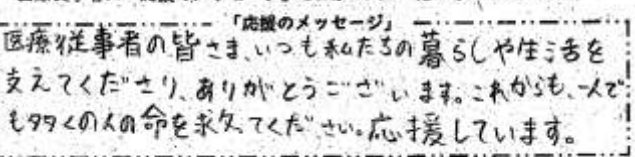 「応援のメッセージ」
医療従事者の皆さま、いつも私たちの暮らしや生活を
支えてくださり、ありがとうございます。これからも、一人で
も多くの人の命を救ってください。応援しています。